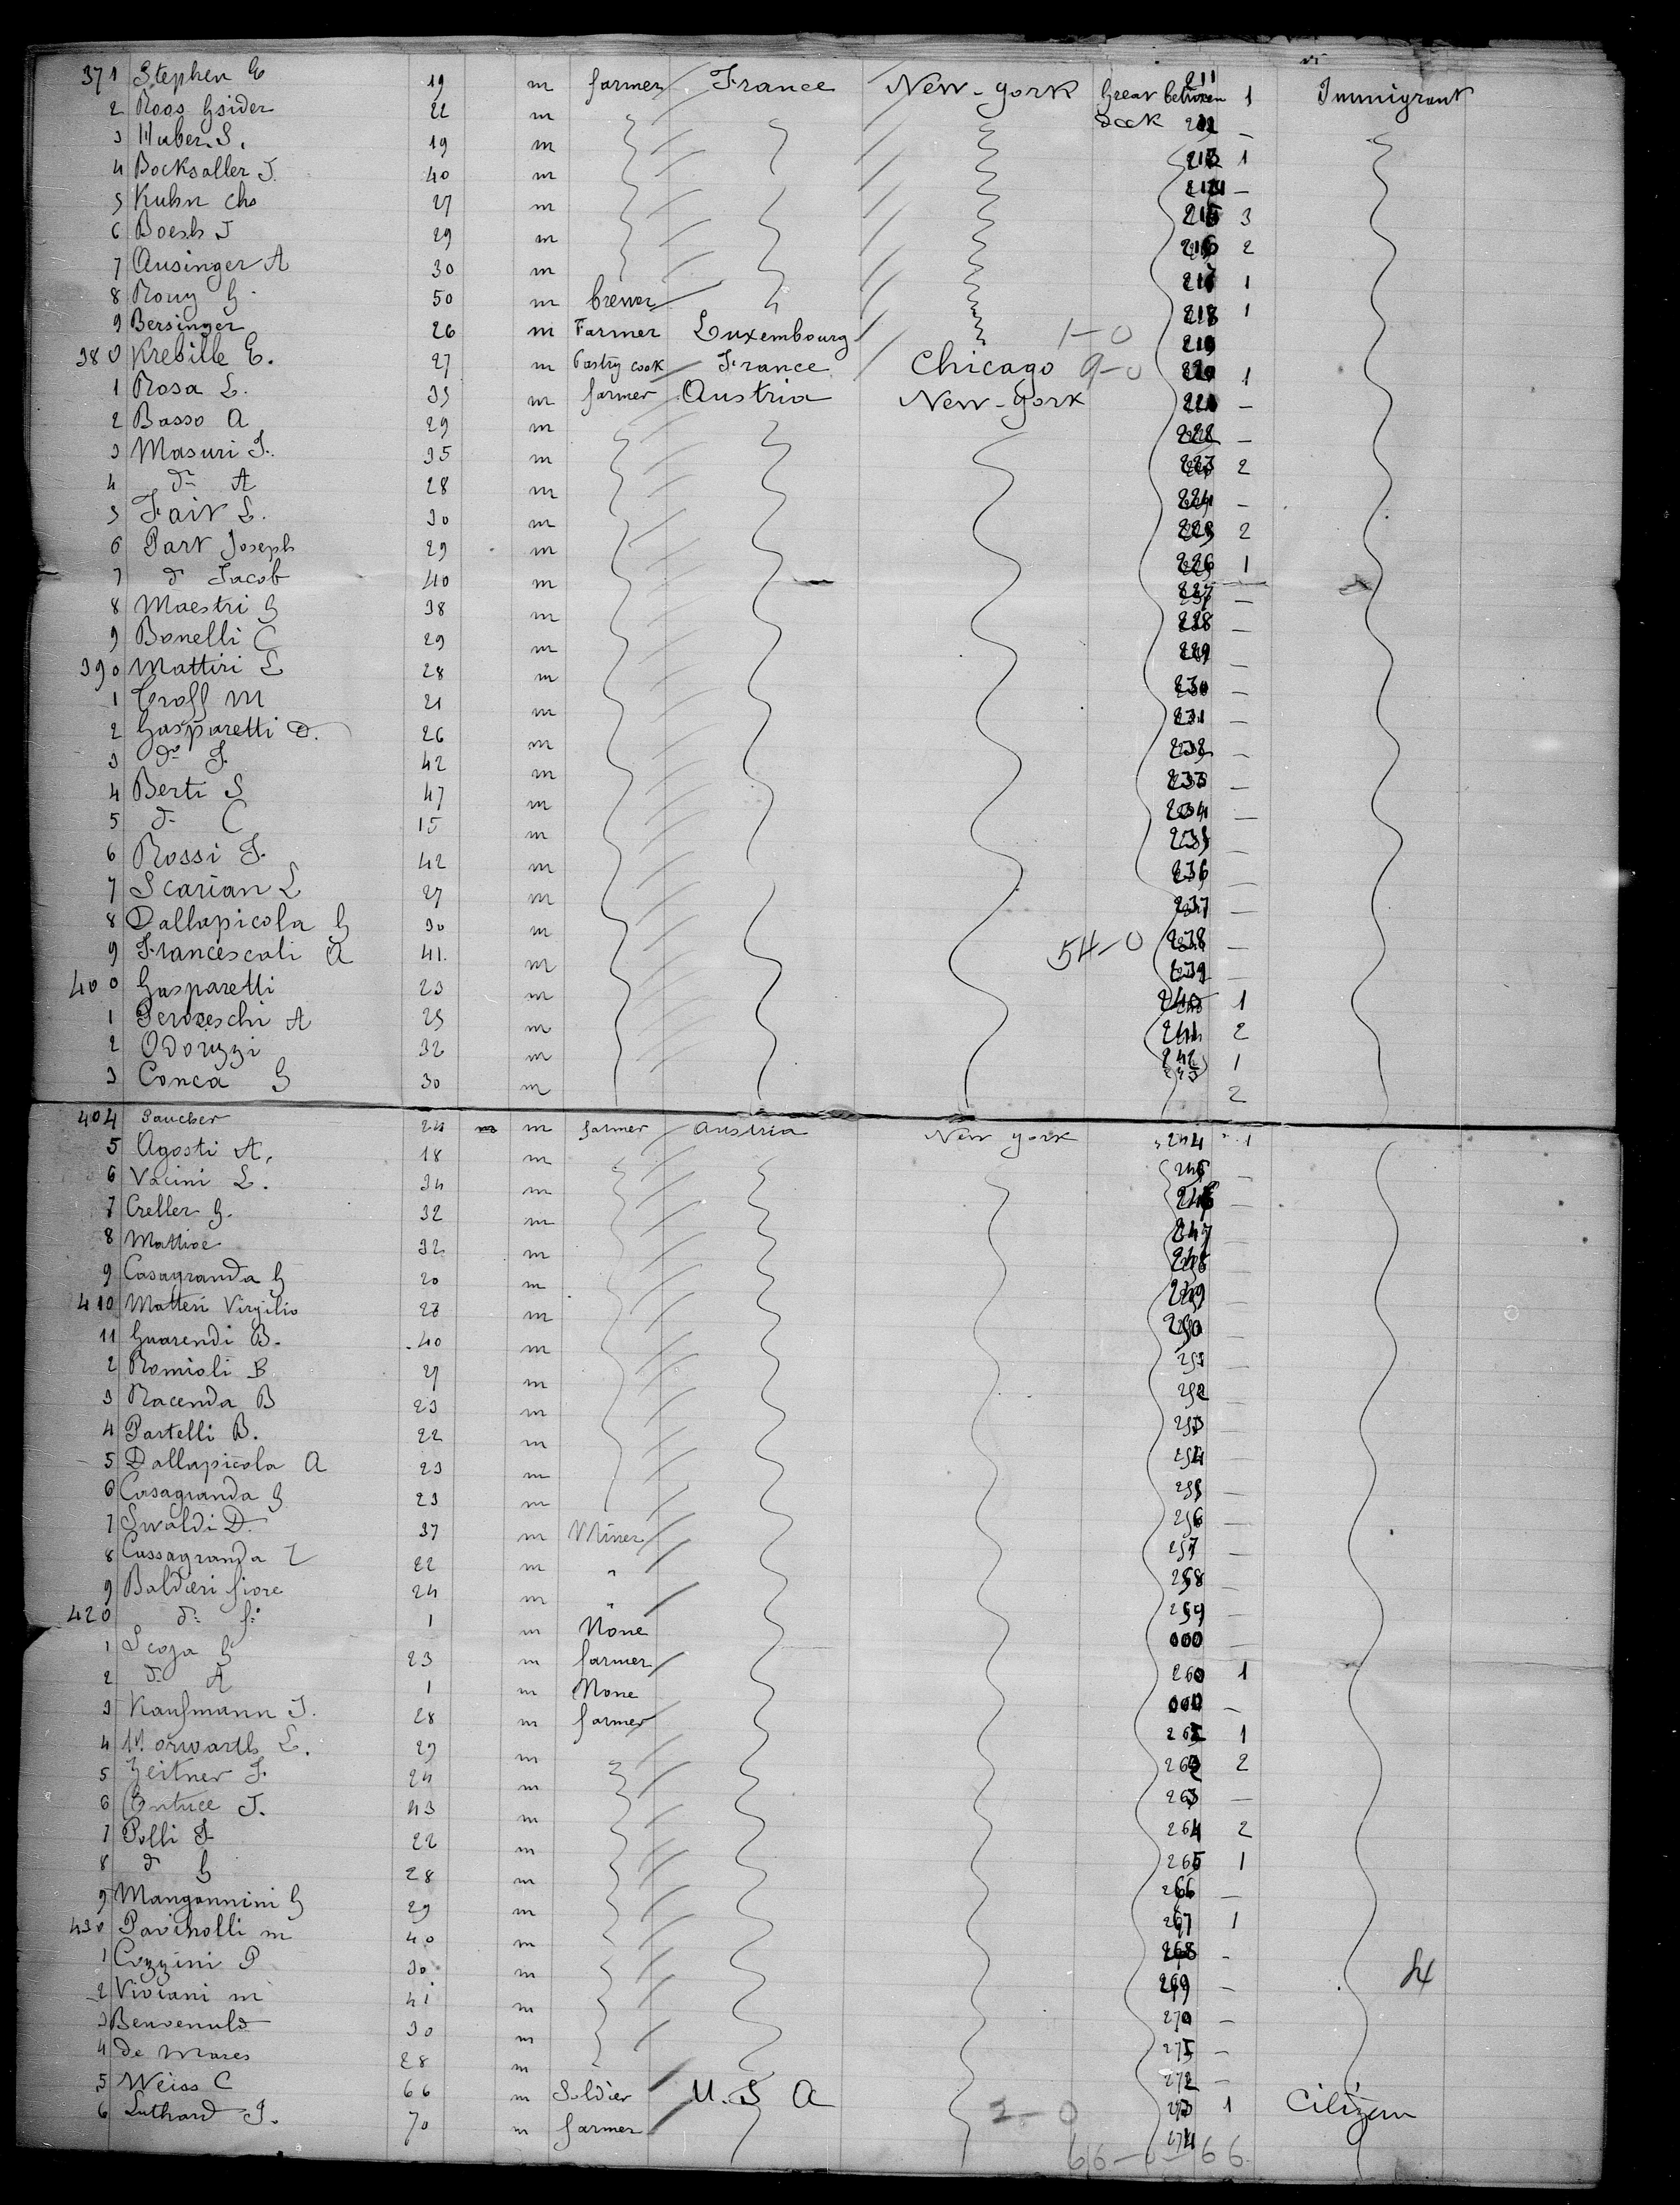 371 Stephen E 19 m farmer France New-york Great between 211 1 Immigrant
2 Roos Gsider 22 m Deck 212 —
3 Huber S. 19 m 213 1
4 Bocksaller J. 40 m 214 —
5 Kuhn Chs 27 m 215 3
6 Boesh J 29 m 216 2
7 Ausinger A 30 m 217 1
8 Rouy G 50 m brewer 218 1
9 Bersinger 26 m Farmer Luxembourg 1-0 219
380 Krebille E. 27 m Pastry cook France Chicago 9-0 220 1
1 Rosa L. 35 m farmer Austria New-york 221 —
2 Basso A 29 m 222 —
3 Masuri F. 35 m 223 2
4 do A 28 m 224 —
5 Fair L. 30 m 225 2
6 Part Joseph 29 m 226 1
7 do Jacob 40 m 227 —
8 Maestri G 38 m 228 —
9 Bonelli C 29 m 229 —
390 Mattiri L 28 m 230 —
1 Groff M 21 m 231 —
2 Gasparetti D. 26 m 232 —
3 do F. 42 m 233 —
4 Berti S 47 m 234 —
5 do C 15 m 235 —
6 Rossi F. 42 m 236 —
7 Scarian L 27 m 237 —
8 Dallapicola G 30 m 54-0 238 —
9 Francescoli A 41. m 239 —
400 Gasparetti 23 m 240 1
1 Peroseschi A 25 m 241 2
2 Odorizzi 32 m 242 1
3 Conca G 30 m 243 2
404 Saucher 24 m m farmer Austria New york 244 1
5 Agosti A. 18 m 245 —
6 Vacini L. 34 m 246 —
7 Creller G. 32 m 247 —
8 Mattioe 32 m 248 —
9 Casagranda G 20 m 249 —
410 Matteri Virgilio 27 m 250 —
11 Guarendi B. 40 m 251 —
2 Romioli B 27 m 252 —
3 Racenda B 23 m 253 —
4 Partelli B. 22 m 254 —
5 Dallapicola A 23 m 255 —
6 Casagranda G 23 m 256 —
7 Swaldi D. 37 m Miner 257 —
8 Cassagranda L 22 m " 258 —
9 Baldieri fiore 24 m " 259 —
420 do f: 1 m None 000 —
1 Scoja G 23 m farmer 260 1
2 do A 1 m None 000 —
3 Kaufmann J. 28 m farmer 261 1
4 Horwarth L. 29 m 262 2
5 Zeitner F. 24 m 263 —
6 J. 43 m 264 2
7 Polli F 22 m 265 1
8 do G 28 m 266 —
9 Mangannini G 29 m 267 1
430 Pavirolli m 40 m 268 —
1 Cozzini P 30 m 269 —
2 Viviani m 41 m 270 —
3 Benvenuto 30 m 271 —
4 de Mares 28 m 272 —
5 Weiss C 66 m Soldier U. S A 2-0 273 1 Citizen
6 Luthard J. 70 m farmer 274
66-0-66